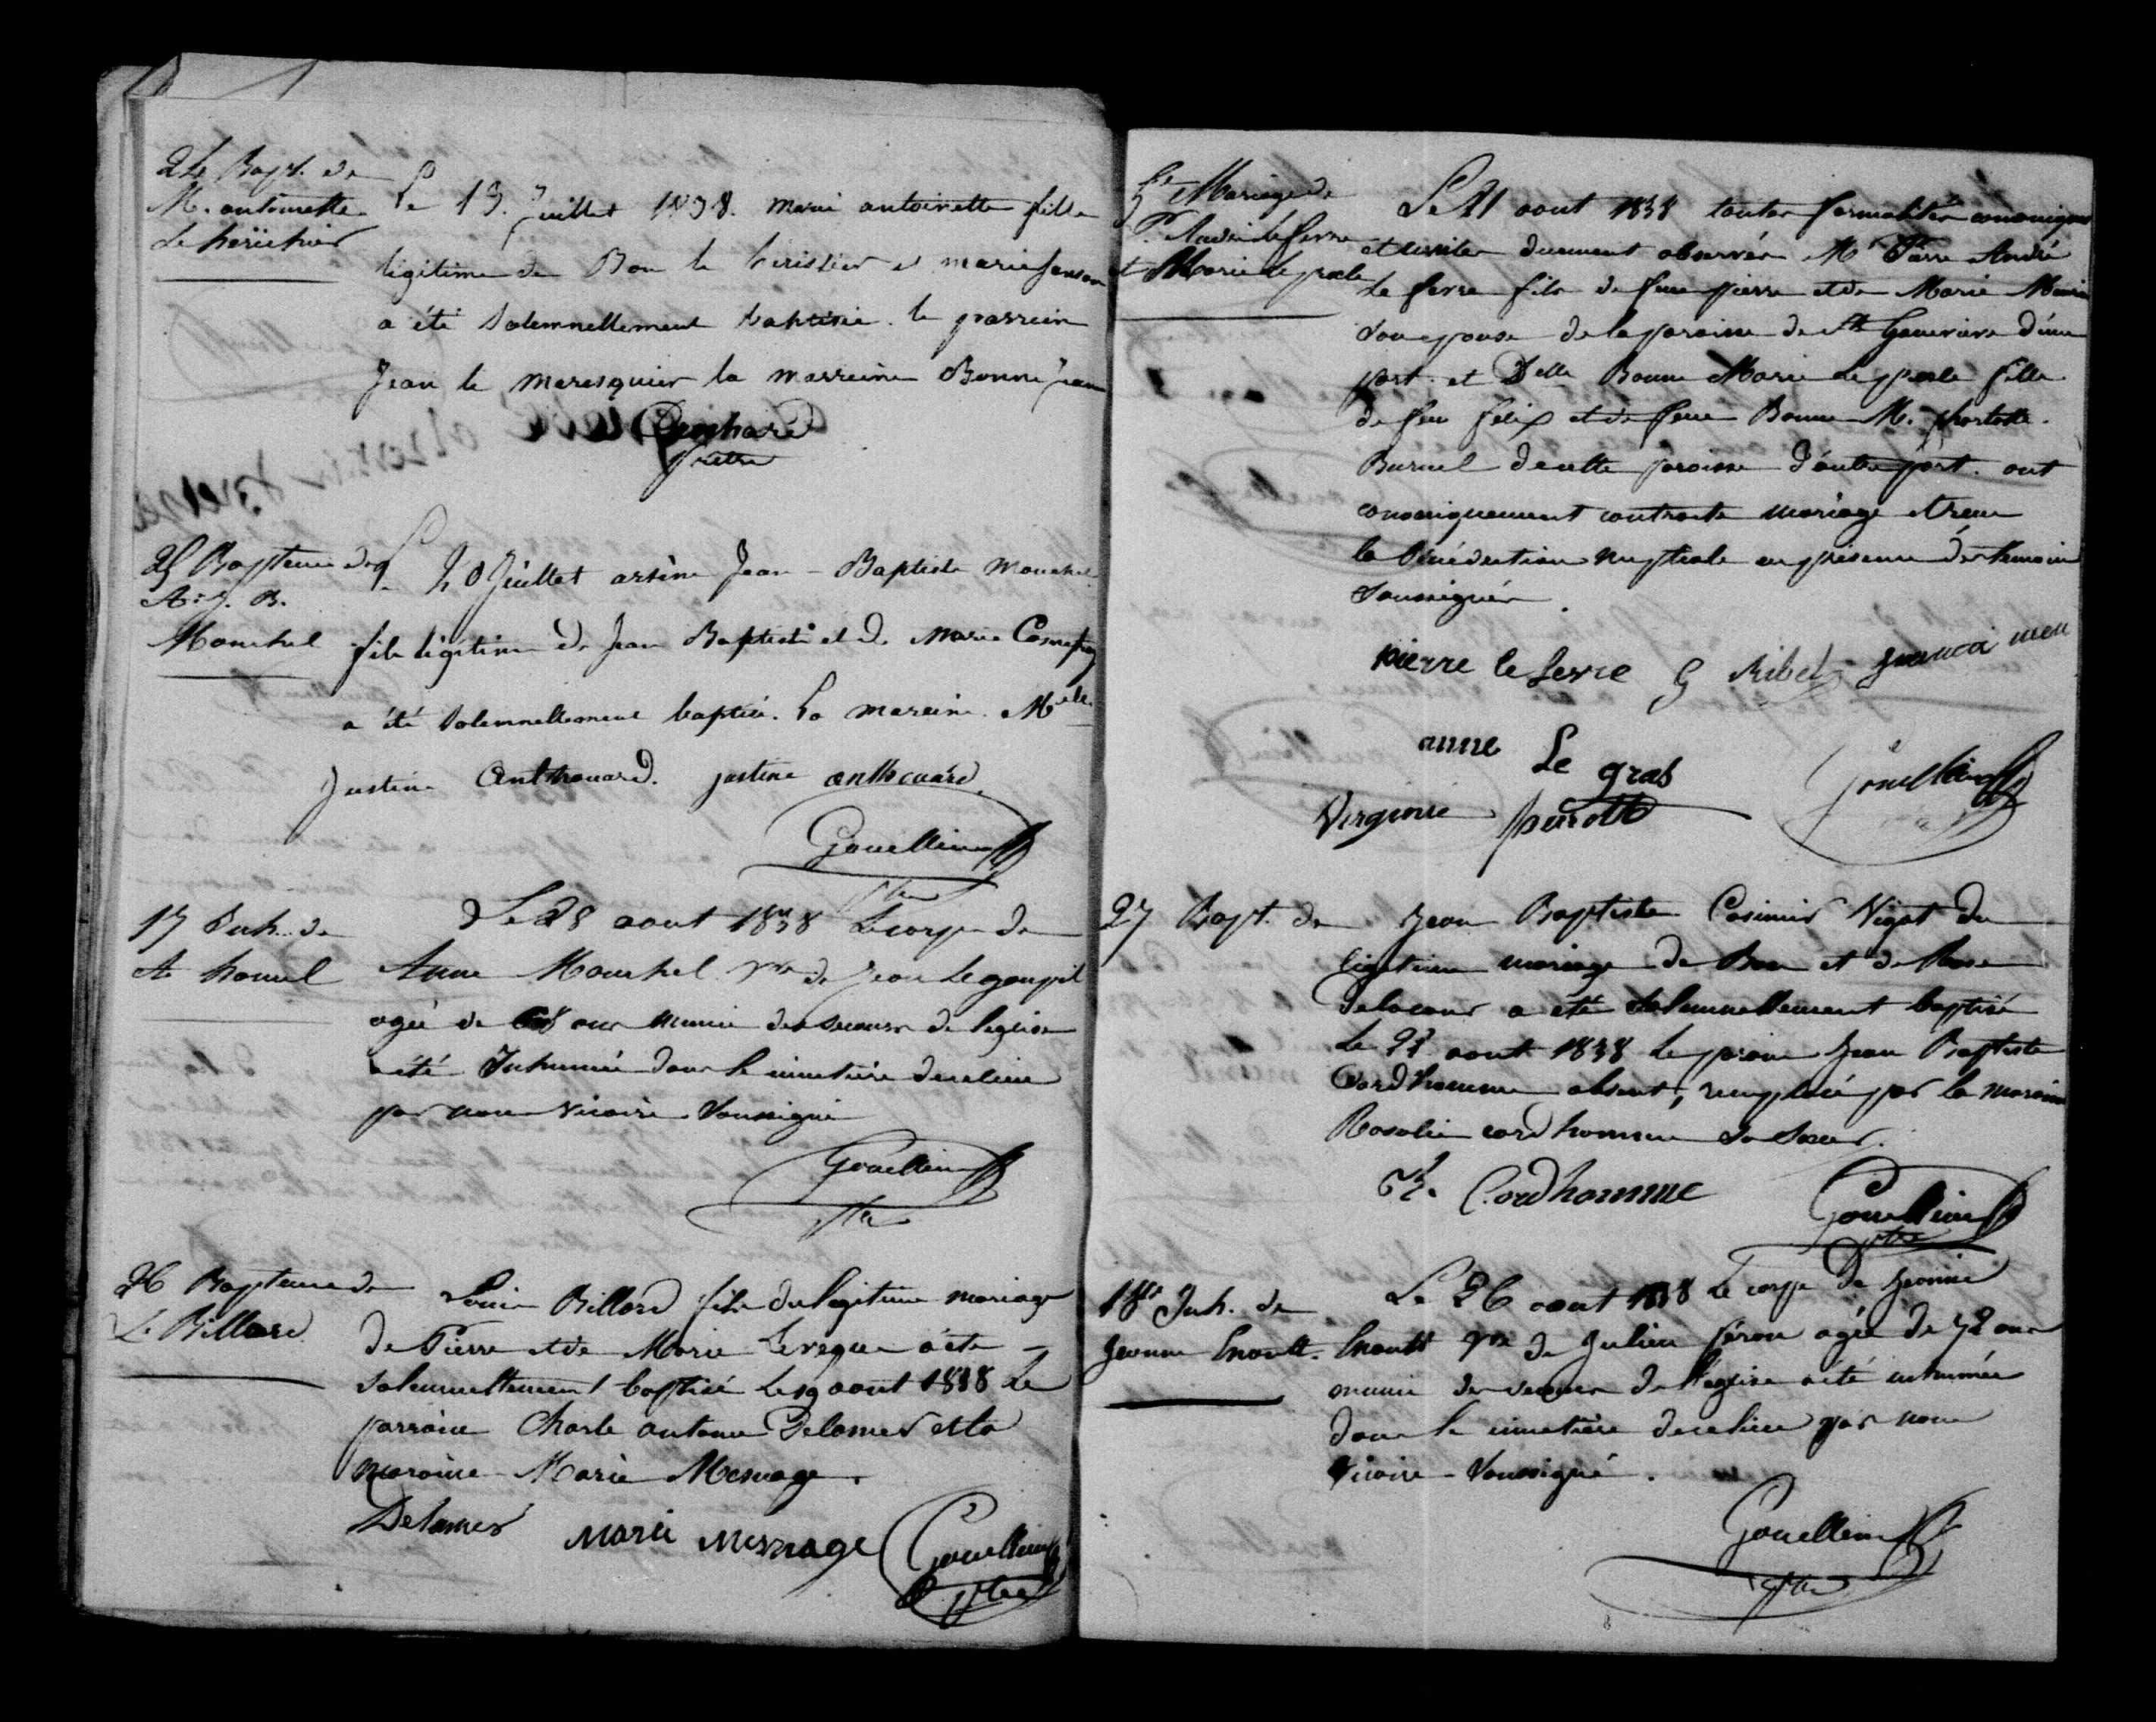 24 Bapt. de
M. antoinette
Le 13. Juillet 1838. marie antoinette fille
légitime de Bon le et marie
a été solemnellement baptisée. le parrein
Jean le maresquier la marreine Bonne
prêtre
25 Bapteme de
A. J. B.
Mouchel
Le 20 Juillet arsène Jean - Baptiste Mouchel
fils légitime de Jean Baptiste et de Marie
a été solemnellement baptisé. La mareine Melle
Justine Anthouard. justine anthouard
Gouellain
ptre
17 Inh. de
A. houel
Le 28 aout 1838 Le corps de
Anne Mouchel Vve de Jean Legoupil
agée de 68 ans munie des secours de leglise
a été Inhumée dans le cimetière de ce lieu
par nous Vicaire soussigné
Gouellain
ptre
26 Bapteme de
L. Billard
Louis Billard fils du légitime mariage
de Pierre et de Marie Leveque a été
solennellement baptisé Le 19 aout 1838 Le
parraine Charle antoine Delamer et la
maraine Marie Mesnage.
Delamer Marie Mesnage Gouellain
ptre
5e Mariage de
P. André Lefevre
et Marie Le poele
Le 21 aout 1838 toutes formalités canoniques
et civiles duement observées Mr Pierre André
Le fevre fils de feu pierre et de Marie
son epouse de la paroisse de Ste Genevieve d'une
part. et Delle Bonne Marie Le poele fille
de feu felix et de feue Bonne M.
Buruel de cette paroisse d'autre part. ont
canoniquement contracté mariage et recu
la bénédiction nuptiale en présence des témoins
soussignés.
pierre le fevre G Ribet
anne Le gras
Virginie Gouellain
27 Bapt. de
Jean Baptiste Casimir Vigot du
légitime mariage de Bon et de Rose
Delacour a été solennellement baptisé
Le 22 aout 1838 Le parain Jean Baptiste
Cordhomme absent, remplacé par la maraine
Rosalie cordhomme sa soeur.
R. Cordhomme
Gouellain
ptre
18e Inh. de
Jeanne Enault.
Le 26 aout 1838 Le corps De Jeanne
Enault Vve de Julien féron agée de 72 ans
munie des secours de l'église a été inhumée
dans le cimetière de ce lieu par nous
Vicaire soussigné.
Gouellain
ptre